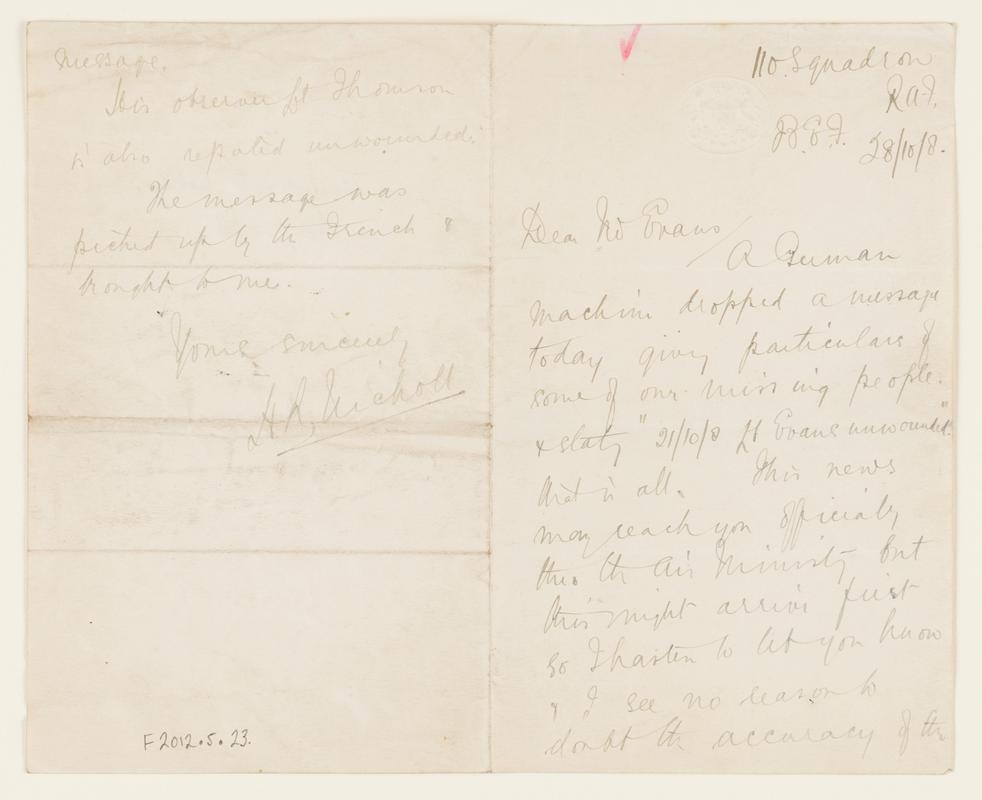 110. Squadron
RAF.
B.E.F. 28/10/8.
Dear Mr Evans
A German
machine dropped a message
today giving particulars of
some of our missing people.
& stating "21/10/8 Lt Evans unwounded."
that is all. This news
may reach you officially
thro. the Air Ministry but
this might arrive first
so I hasten to let you know
& I see no reason to
doubt the accuracy of the
message.
His observer Lt Thomson
is also reported unwounded.
The message was
picked up by the French &
brought to me.
Yours sincerely
H R Nicholl
F2012.5.23.